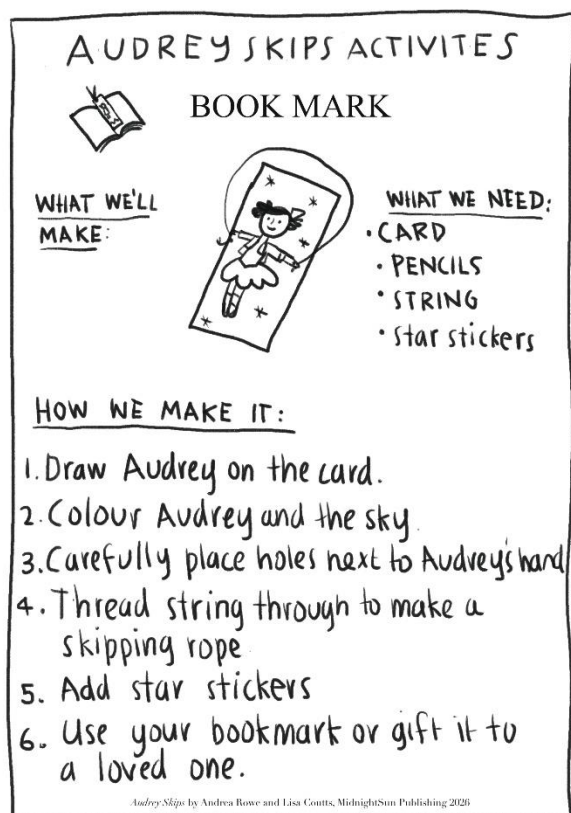 AUDREY SKIPS ACTIVITES
BOOK MARK
WHAT WE'LL
MAKE:
WHAT WE NEED:
• CARD
• PENCILS
• STRING
• Star stickers
HOW WE MAKE IT:
1. Draw Audrey on the card.
2. Colour Audrey and the sky
3. Carefully place holes next to Audrey's hand
4. Thread string through to make a
skipping rope
5. Add star stickers
6. Use your bookmark or gift it to
a loved one.
Audrey Skips by Andrea Rowe and Lisa Coutts, MidnightSun Publishing 2026